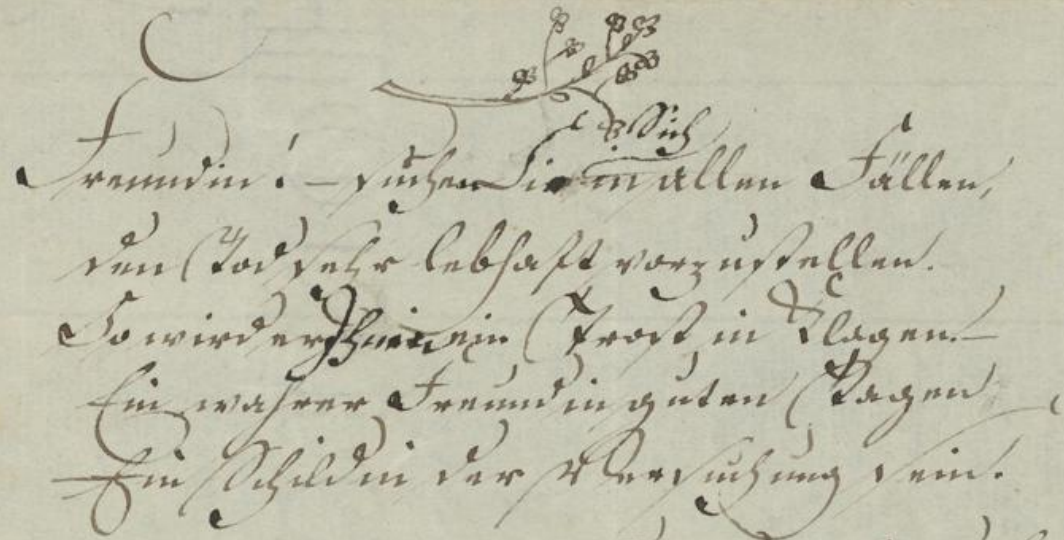 Sich
Freundin! – suchen Sie in allen Fällen,
den Tod sehr lebhaft vorzustellen.
So wird er Ihnen ein Trost in Klagen. –
Ein wahrer Freund in guten Tagen
Ein Schild in der Versuchung sein.